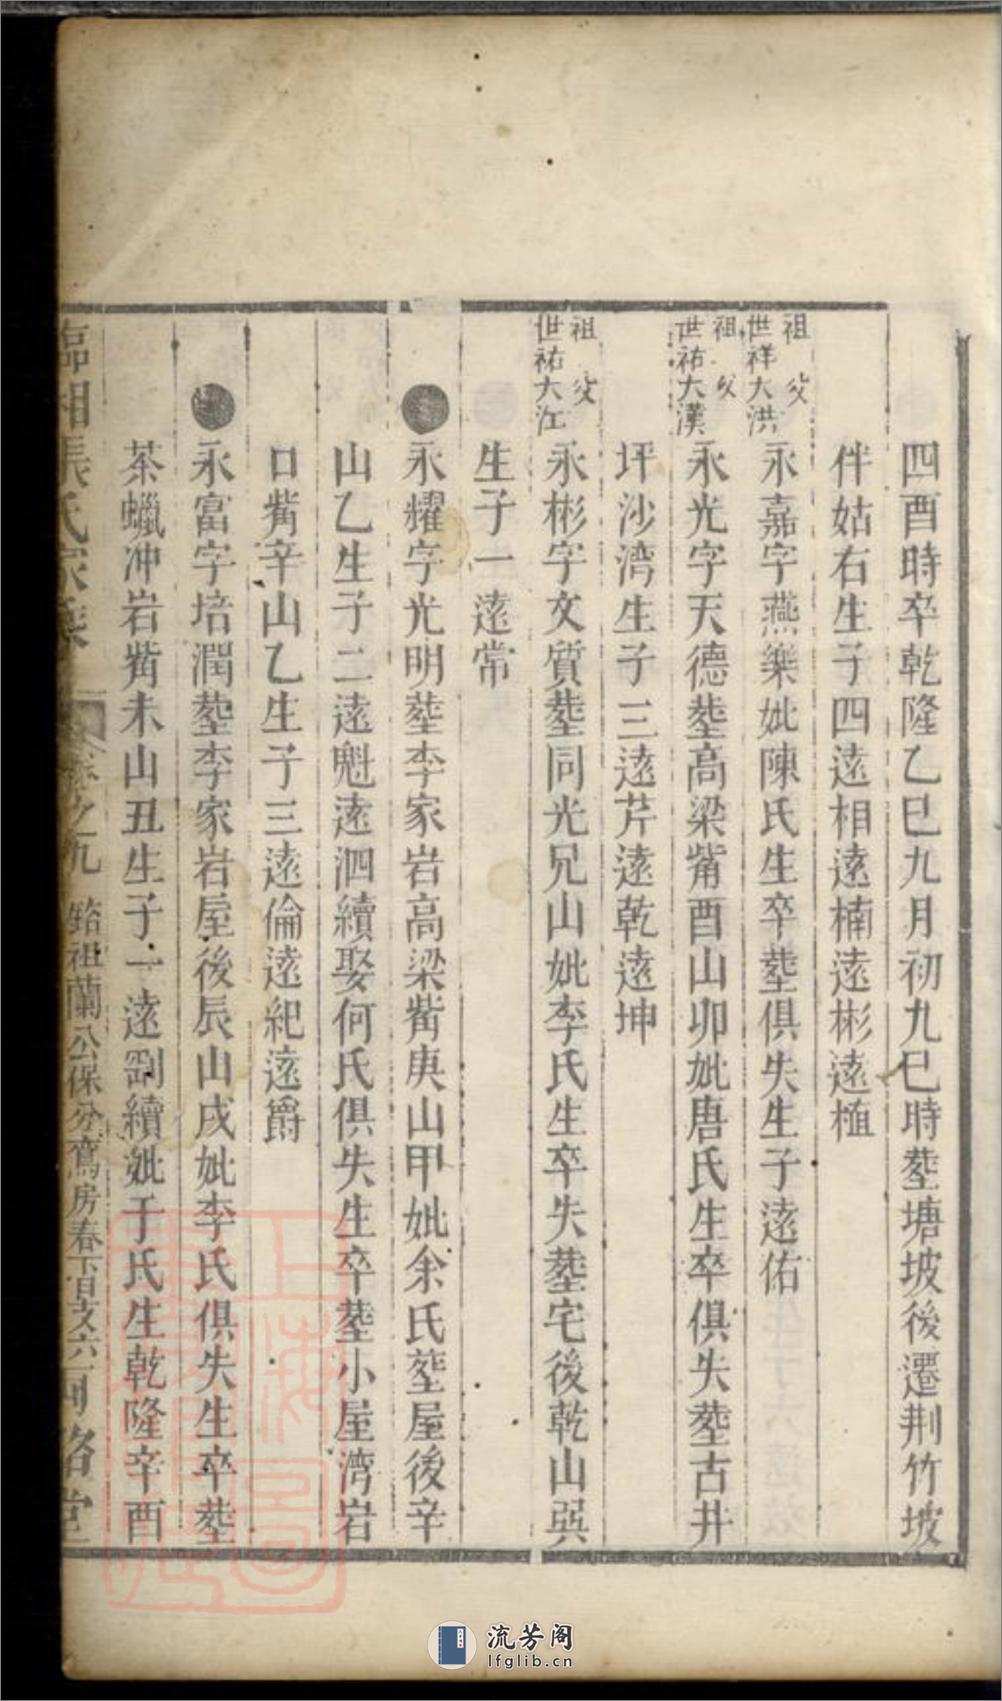 四酉時卒乾隆乙巳九月初九巳時塟塘坡後遷荆竹坡
伴姑右生子四逺相逺楠逺彬逺植
祖父
世祥大洪
永嘉字燕樂妣陳氏生卒塟俱失生子逺佑
祖父
世祐大漢
永光字天德塟高梁觜酉山卯妣唐氏生卒俱失塟古井
坪沙湾生子三逺芹逺乾逺坤
祖父
世祐大江
永彬字文質塟同光兄山妣李氏生卒失塟宅後乾山巽
生子一逺常
永耀字光明塟李家岩高梁觜庚山甲妣余氏塟屋後辛
山乙生子二逺魁逺泗續娶何氏俱失生卒塟小屋湾岩
口觜辛山乙生子三逺倫逺紀逺爵
永富字培潤塟李家岩屋後辰山戌妣李氏俱失生卒塟
茶蠟冲岩觜未山丑生子一逺劉續妣于氏生乾隆辛酉
臨湘張氏家乘 卷之九 祖蘭公保分鴦房春 百支六 河洛堂
上海圖書館藏
流芳阁
lfglib.cn